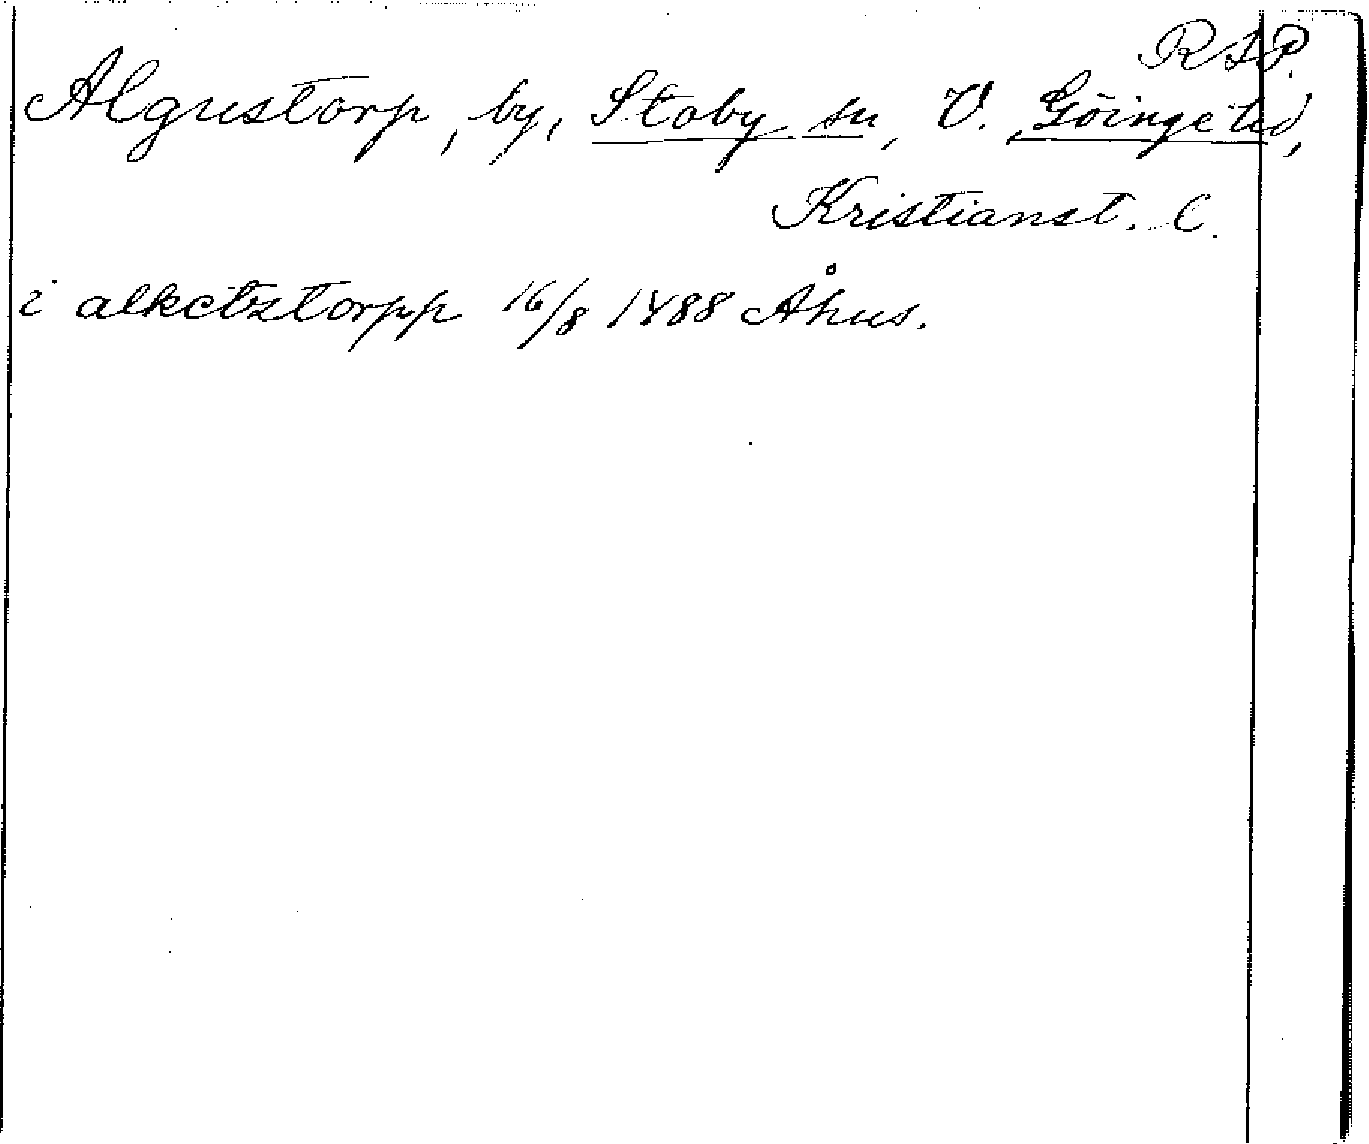 RAP.
Algustorp, by, Stoby sn, V. Göinge hd,
Kristianst. C.
i alketztorpp 16/8 1488 Åhus.